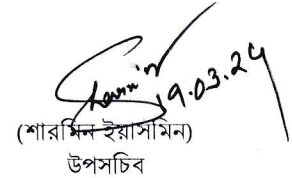 19.03.24
(শারমিন ইয়াসমিন)
উপসচিব